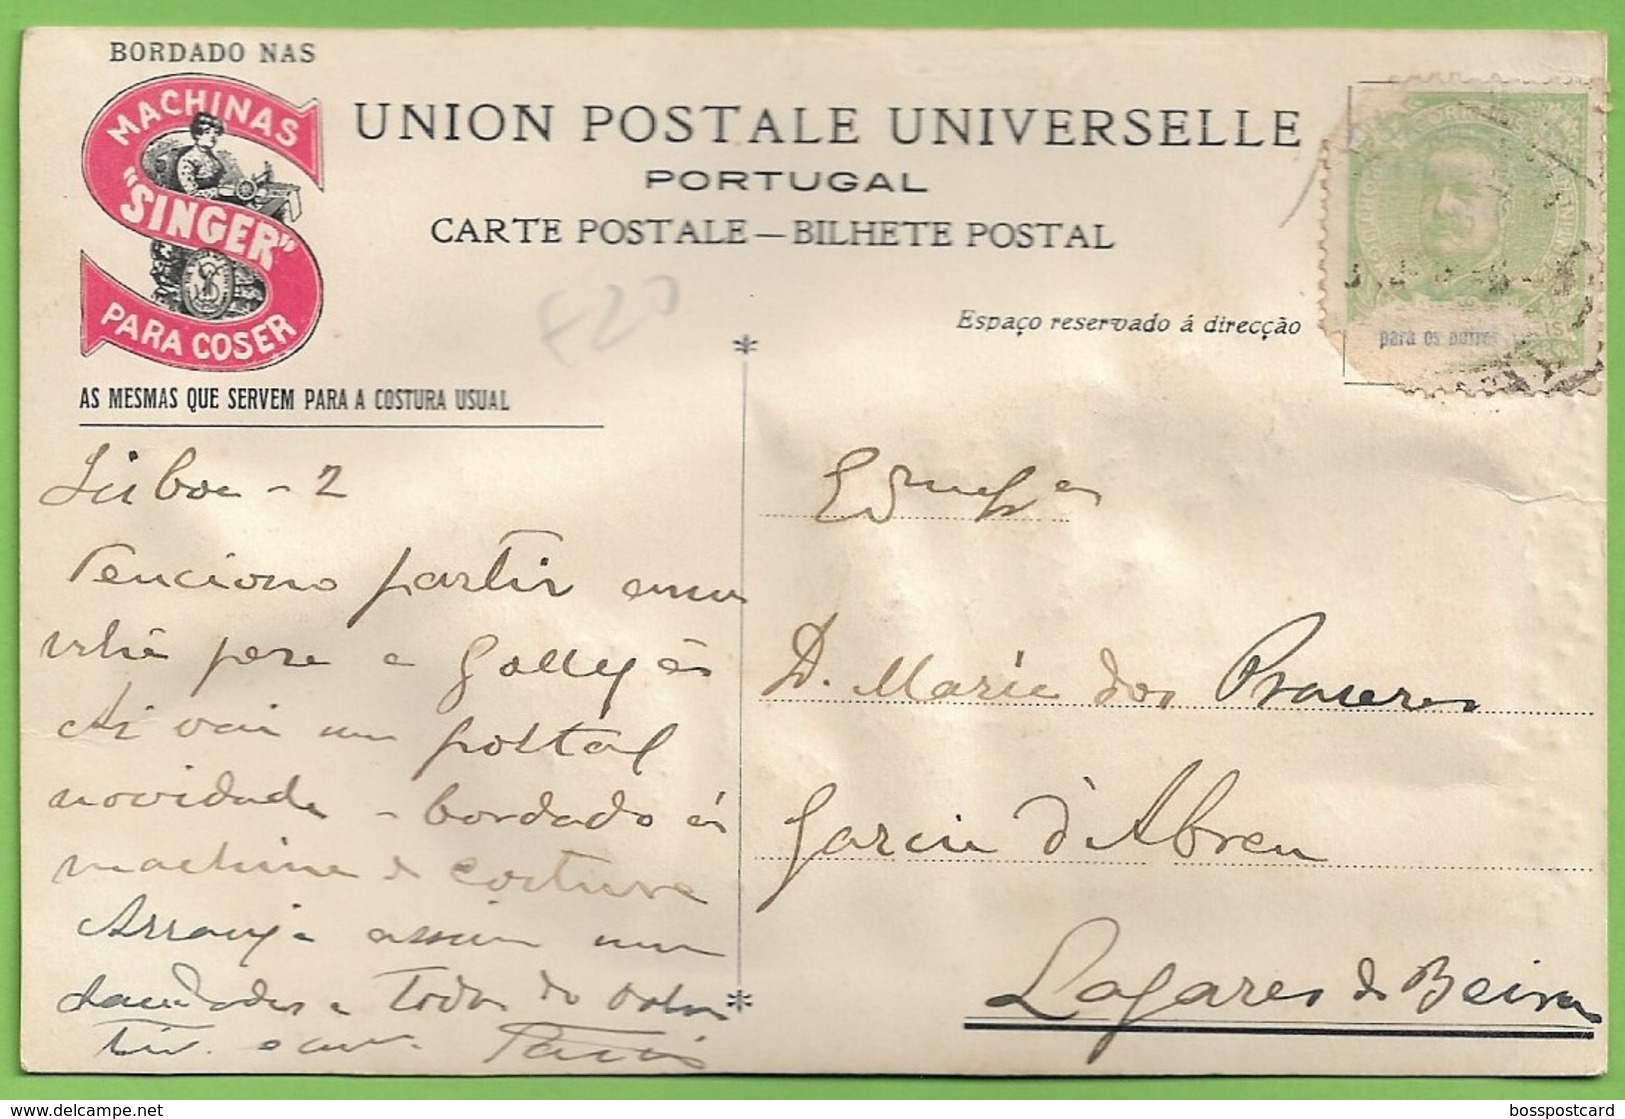 BORDADO NAS
MACHINAS
"SINGER"
PARA COSER
AS MESMAS QUE SERVEM PARA A COSTURA USUAL
UNION POSTALE UNIVERSELLE
PORTUGAL
CARTE POSTALE — BILHETE POSTAL
Espaço reservado á direcção
para os outros
F20
Lisboa - 2
Tenciono partir
para a
Ai vai um postal
novidade - bordado ás
machina de costura
Arranja assim um
saudades a todos do
D. Maria dos Prazeres
Garcia d'Abreu
Lagares da Beira
delcampe.net
bosspostcard